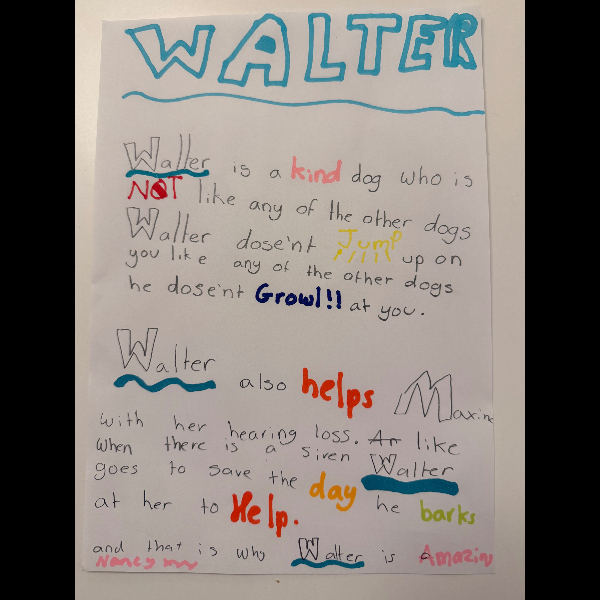 WALTER
Walter is a kind dog who is
NOT like any of the other dogs
Walter dose'nt Jump up on
you like any of the other dogs
he dose'nt Growl!! at you.
Walter also helps Maxine
with her hearing loss. Ar like
When there is a siren Walter
goes to save the day he barks
at her to Help.
and that is why Walter is Amazin
Nancy